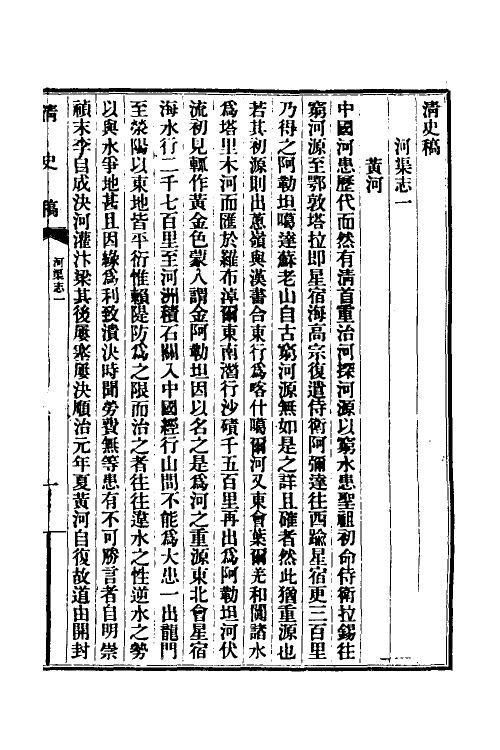 清史稿
河渠志一
黃河
中國河患歷代而然有清首重治河探河源以窮水患聖祖初命侍衛拉錫往
窮河源至鄂敦塔拉即星宿海高宗復遣侍衛阿彌達往西踰星宿更三百里
乃得之阿勒坦噶達蘇老山自古窮河源無如是之詳且確者然此猶重源也
若其初源則出蔥嶺與漢書合東行爲喀什噶爾河又東會葉爾羌和闐諸水
爲塔里木河而匯於羅布淖爾東南潛行沙磧千五百里再出爲阿勒坦河伏
流初見輒作黃金色蒙人謂金阿勒坦因以名之是爲河之重源東北會星宿
海水行二千七百里至河洲積石關入中國經行山間不能爲大患一出龍門
至滎陽以東地皆平衍惟賴隄防爲之限而治之者往往違水之性逆水之勢
以與水爭地甚且因緣爲利致潰決時聞勞費無等患有不可勝言者自明崇
禎末李自成決河灌汴梁其後屢塞屢決順治元年夏黃河自復故道由開封
清史稿
河渠志一
一